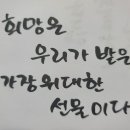 희망은
우리가 받은
가장 위대한
선물이다